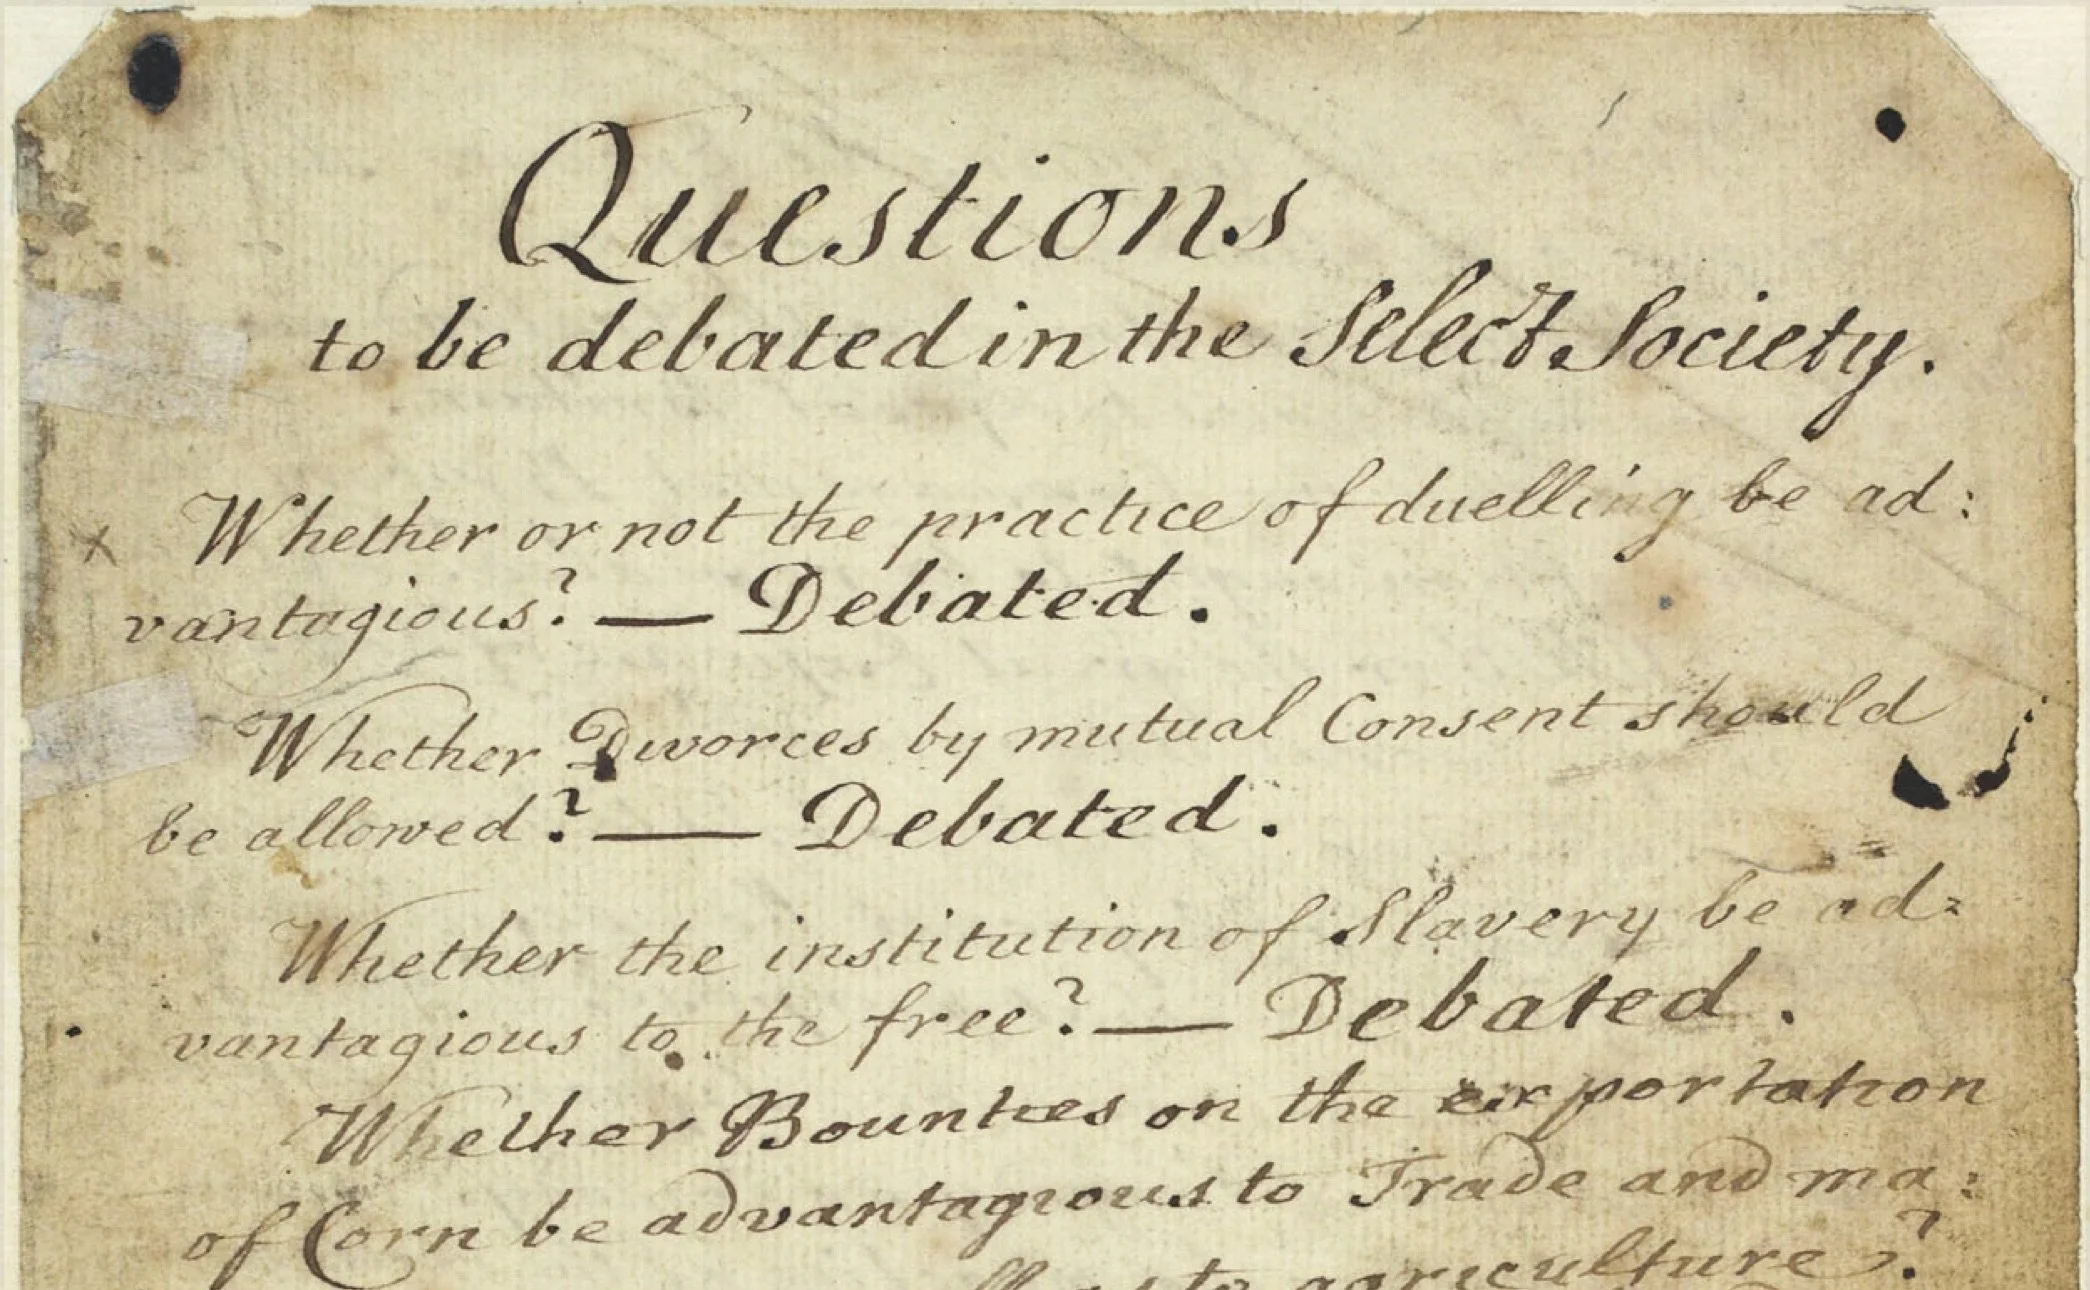 Questions
to be debated in the Select Society.
Whether or not the practice of duelling be ad:
vantagious? — Debated.
Whether Divorces by mutual Consent should
be allowed? — Debated.
Whether the institution of Slavery be ad:
vantagious to the free? — Debated.
Whether Bounties on the exportation
of Corn be advantagious to Trade and ma:
as to agriculture?